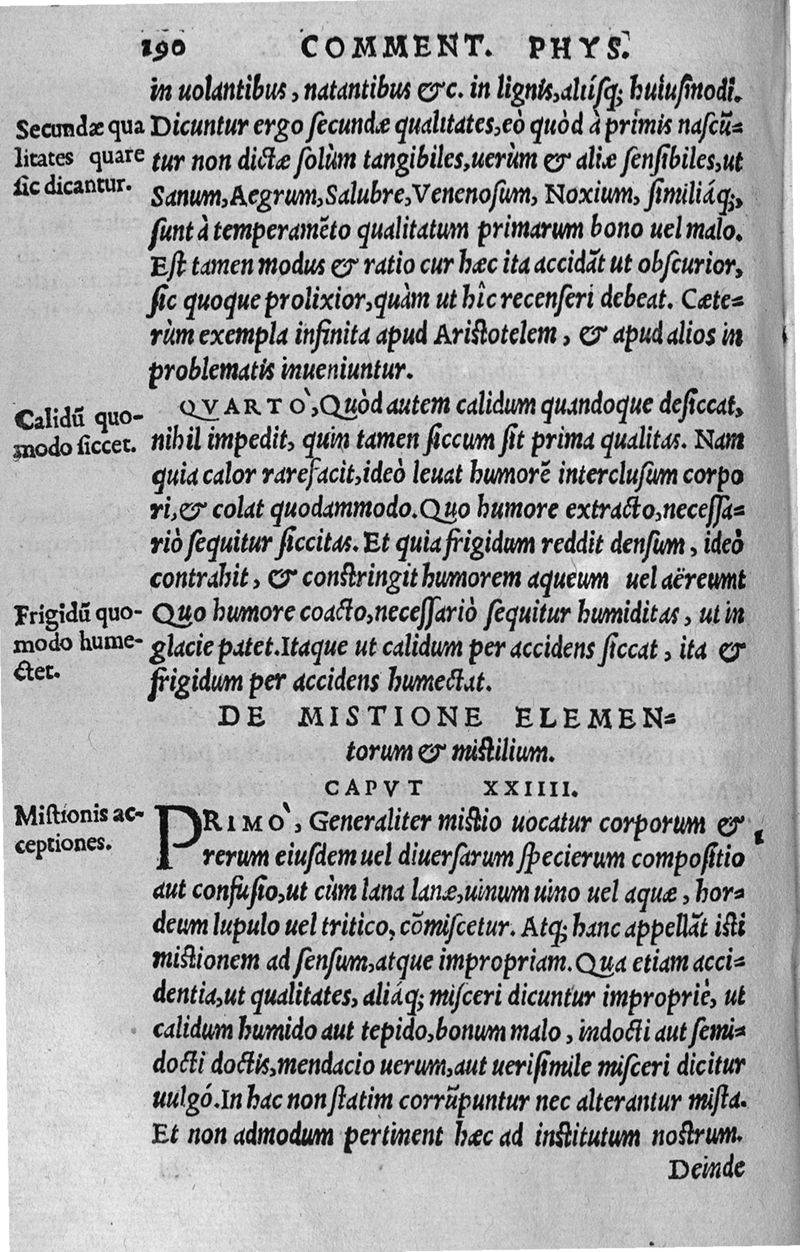 190 COMMENT. PHYS.
in uolantibus, natantibus &c. in lignis, alijsq; huiusmodi.
Secundæ qua
litates quare
sic dicantur.
Dicuntur ergo secundæ qualitates, eò quòd à primis nascũ=
tur non dictæ solùm tangibiles, uerùm & aliæ sensibiles, ut
Sanum, Aegrum, Salubre, Venenosum, Noxium, similiáq;,
sunt à temperamẽto qualitatum primarum bono uel malo.
Est tamen modus & ratio cur hæc ita accidãt ut obscurior,
sic quoque prolixior, quàm ut hîc recenseri debeat. Cæte=
rùm exempla infinita apud Aristotelem, & apud alios in
problematis inueniuntur.
Calidũ quo-
modo siccet.
QVARTO`, Quòd autem calidum quandoque desiccat,
nihil impedit, quin tamen siccum sit prima qualitas. Nam
quia calor rarefacit, ideò leuat humorẽ interclusum corpo
ri, & colat quodammodo. Quo humore extracto, necessa=
riò sequitur siccitas. Et quia frigidum reddit densum, ideò
contrahit, & constringit humorem aqueum uel aëreumt
Frigidũ quo-
modo hume-
ctet.
Quo humore coacto, necessariò sequitur humiditas, ut in
glacie patet. Itaque ut calidum per accidens siccat, ita &
frigidum per accidens humectat.
DE MISTIONE ELEMEN=
torum & mistilium.
CAPVT XXIIII.
Mistionis ac-
ceptiones.
PRIMO`, Generaliter mistio uocatur corporum &
rerum eiusdem uel diuersarum specierum compositio
aut confusio, ut cùm lana lanæ, uinum uino uel aquæ, hor=
deum lupulo uel tritico, cõmiscetur. Atq; hanc appellãt isti
mistionem ad sensum, atque impropriam. Qua etiam acci=
dentia, ut qualitates, aliáq; misceri dicuntur impropriè, ut
calidum humido aut tepido, bonum malo, indocti aut semi=
docti doctis, mendacio uerum, aut uerisimile misceri dicitur
uulgó. In hac non statim corrũpuntur nec alterantur mista.
Et non admodum pertinent hæc ad institutum nostrum.
Deinde